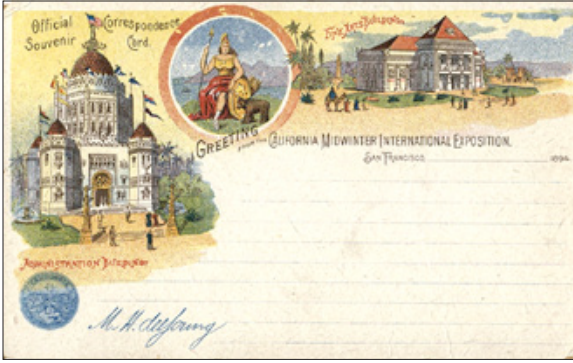 Official Correspondence
Souvenir Card.
Fine Arts Building
GREETING FROM THE CALIFORNIA MIDWINTER INTERNATIONAL EXPOSITION.
SAN FRANCISCO 1894
ADMINISTRATION BUILDING
M. H. de Young